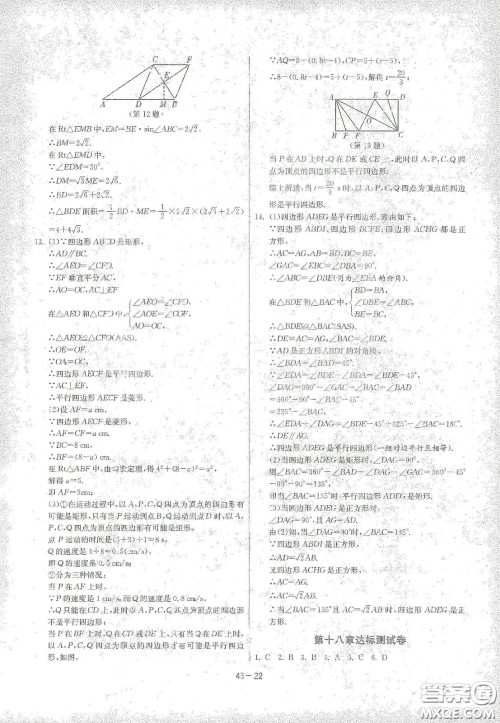 C F
E
A D M B
(第12题)
在Rt△EMB中,EM=BE·sin∠ABC=2√2.
∴BM=2√2.
在Rt△EMD中,
∵∠EDM=30°,
∴DM=√3ME=2√6.
∴DB=2√2+2√6.
∴△BDE面积=1/2·BD·ME=1/2×2√2×(2√2+2√6)
=4+4√3.
13. (1)∵四边形ABCD是矩形,
∴AD∥BC.
∴∠AEO=∠CFO.
∵EF垂直平分AC,
∴AO=OC,AC⊥EF.
在△AEO和△CFO中, {∠AEO=∠CFO, ∠AOE=∠COF, AO=CO,
∴△AEO≌△CFO(AAS).
∴OE=OF.
∵OA=OC,
∴四边形AECF是平行四边形.
∵AC⊥EF,
∴平行四边形AECF是菱形.
(2)设AF=a cm,
∵四边形AECF是菱形,
∴AF=CF=a cm.
∵BC=8 cm,
∴BF=(8-a)cm.
在Rt△ABF中,由勾股定理,得4²+(8-a)²=a².
解得a=5.
即AF=5cm.
(3)①在运动过程中,以A,P,C,Q为顶点的四边形有
可能是矩形,只有当P运动到B点、Q运动到D点时,以
A,P,C,Q四点为顶点的四边形有可能是矩形.
点P运动的时间是(5+3)÷1=8(s).
Q的速度是4÷8=0.5(cm/s).
即Q的速度是0.5 cm/s.
②分为三种情况:
当P在AF上时,
∵P的速度是1cm/s,而Q的速度是0.8cm/s,
∴Q只能在CD上,此时以A,P,C,Q四点为顶点的四
边形不是平行四边形;
当P在BF上时,Q在CD或DE上,只有当Q在DE上
时,以A,P,C,Q四点为顶点的四边形才有可能是平行四
边形,如图.
∵AQ=8-(0.8t-4),CP=5+(t-5),
∴8-(0.8t-4)=5+(t-5),解得t=20/3;
A E D
B F C
(第13题)
当P在AB上时,Q在DE或CE上,此时以A,P,C,Q四
点为顶点的四边形不是平行四边形.
综上所述,当t=20/3 s时,以A,P,C,Q为顶点的四边形
是平行四边形.
14. (1)四边形ADEG是平行四边形.理由如下:
∵四边形ABDI、四边形BCFE、四边形ACHG都是正
方形,
∴AC=AG,AB=BD,BC=BE,
∠GAC=∠EBC=∠DBA=90°.
∴∠ABC=∠DBE(同为∠EBA的余角).
在△BDE和△BAC中, {BD=BA, ∠DBE=∠ABC, BE=BC,
∴△BDE≌△BAC(SAS).
∴DE=AC=AG,∠BAC=∠BDE.
∵AD是正方形ABDI的对角线,
∴∠BDA=∠BAD=45°.
∵∠EDA=∠BDE-∠BDA=∠BDE-45°,
∠DAG=360°-∠GAC-∠BAC-∠BAD=
360°-90°-∠BAC-45°
=225°-∠BAC,
∴∠EDA+∠DAG=∠BDE-45°+225°-∠BAC=180°.
∴DE∥AG.
∴四边形ADEG是平行四边形(一组对边平行且相等).
(2)当四边形ADEG是矩形时,∠DAG=90°.
则∠BAC=360°-∠BAD-∠DAG-∠GAC=360°-45°
-90°-90°=135°,
即当∠BAC=135°时,四边形ADEG是矩形.
(3)当四边形ADEG是正方形时,
∠DAG=90°,且AG=AD.
由(2)知,当∠DAG=90°时,∠BAC=135°.
∵四边形ABDI是正方形,
∴AD=√2AB.
又∵四边形ACHG是正方形,
∴AC=AG.
∴AC=√2AB.
∴当∠BAC=135°且AC=√2AB时,四边形ADEG是正
方形.
第十八章达标测试卷
1. C 2. B 3. B 4. C 5. C 6. D
43-22
答案圈
MXQE.COM